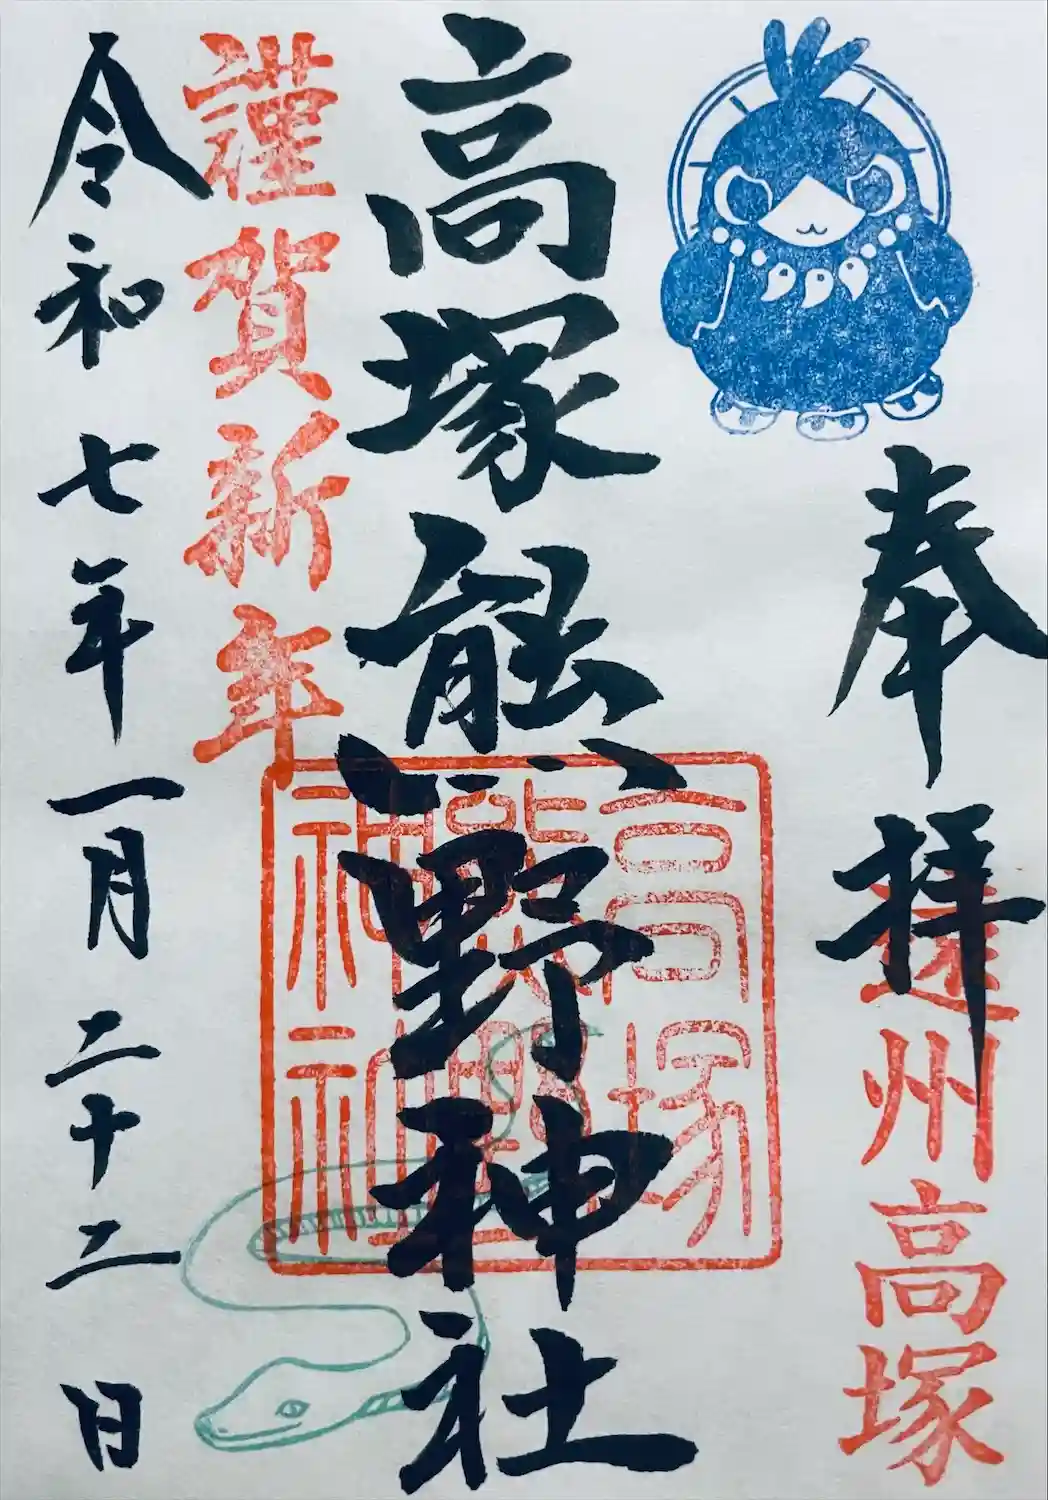 奉拝
遠州高塚
高塚熊野神社
高塚
熊野
神社
謹賀新年
令和七年一月二十二日